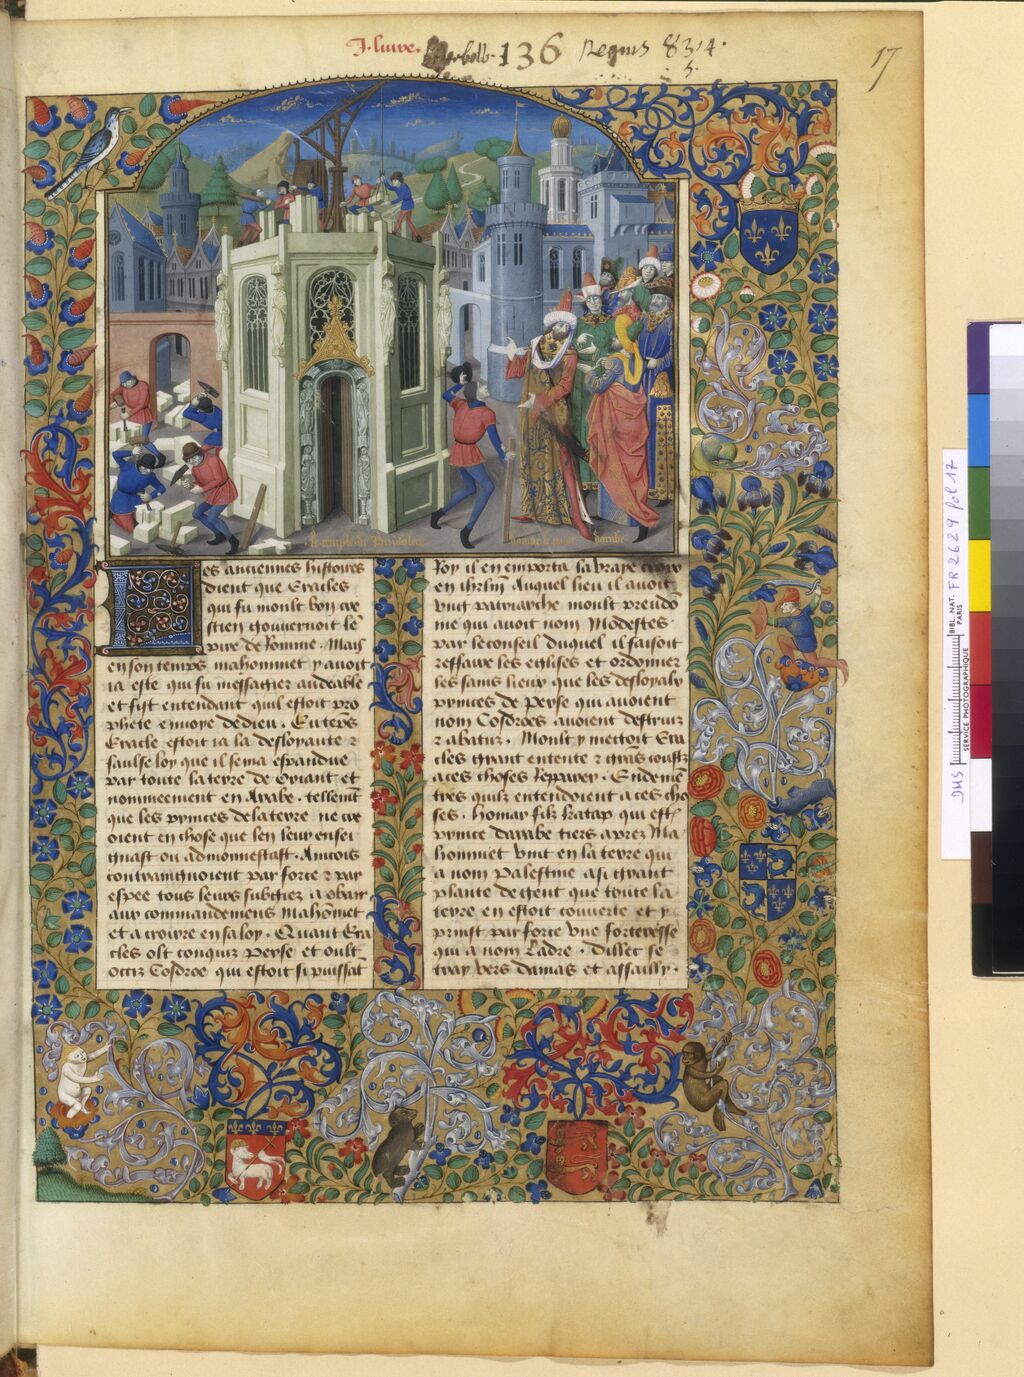 J. livre.
136 Regius 8314.
5.
17
le temple de
Les anciennes histoires
dient que Eracles
qui fu moult bon cre
stien gouvernoit lem
pire de Romme. Mais
en son temps mahommet y avoit
ia este qui fu messagier au deable
et fist entendant quil estoit pro
phete envoye de dieu. Eu teps
Eracle estoit ia la desloyaute et
faulse loy que il sema espandue
par toute la terre de Oriant et
nommeement en Arabe. tellemt
que les princes de la terre ne cre
oient en chose que len leur ensei
gnast ou admonnestast. Aincois
contraingnoient par force et par
espee tous leurs subgiez a obair
aux commandemens Mahommet
et a croire en sa loy. Quant Era
cles olt conquiz Perse et oult
occiz Cosdroe qui estoit si puissat
Roy il en emporta la vraie croix
en ihrlm Auquel lieu il avoit
ung patriarche moult preudo
me qui avoit nom Modestes
par le conseil duquel il faisoit
reffaire les eglises et ordonner
les sains lieux que les desloyaly
princes de perse qui avoient
nom Cosdroes avoient destruiz
et abatuz. Moult y mettoit Era
cles grant entente et grans coustz
a ces choses Repparer. Endemen
tres quilz entendoient a ces cho
ses. homar filz hatap qui estoit
prince darabe tiers aprez Ma
hommet vint en la terre qui
a nom palestine a si grant
plante de gent que toute la
terre en estoit couverte et y
prinst par force une forteresse
qui a nom Ladre. Dillec se
tray vers damas et assailly.
DHS
BIBL. NAT. FR 2629 fol 17
SERVICE PHOTOGRAPHIQUE PARIS